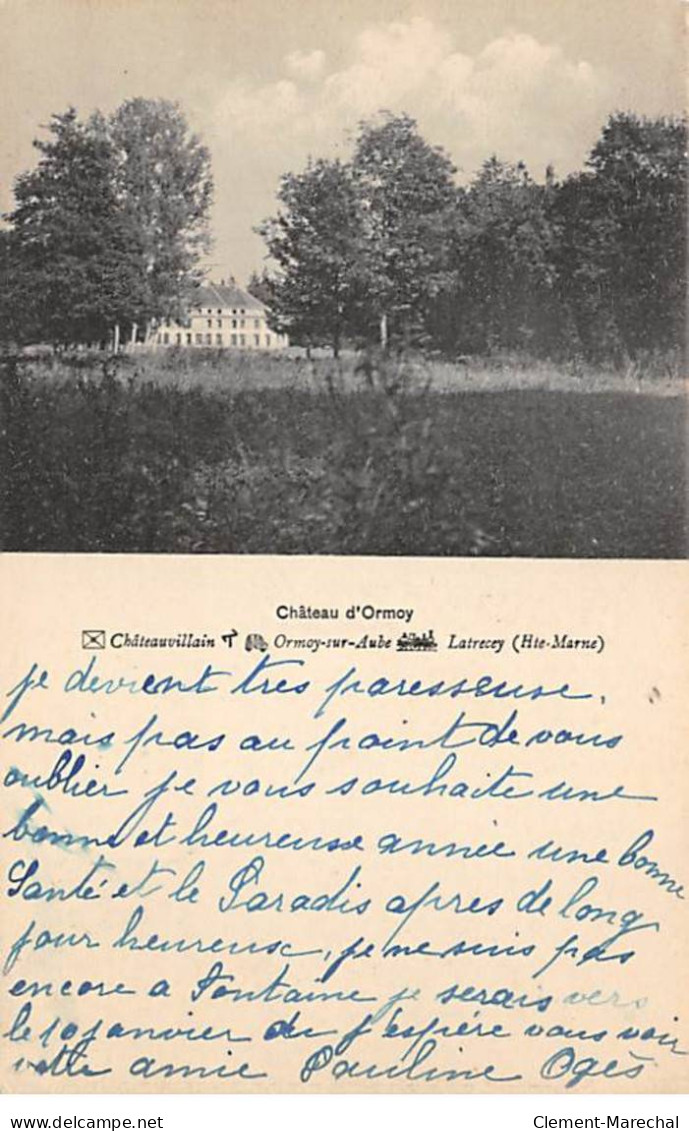 Château d'Ormoy
Châteauvillain Ormoy-sur-Aube Latrecey (Hte-Marne)
je devient tres paresseuse,
mais pas au point de vous
oublier je vous souhaite une
bonne et heureuse année une bonne
Santé et le Paradis apres de long
jour heureux, je ne suis pas
encore a Fontaine je serais vers
le 10 janvier ou j'espére vous voir
votre amie Pauline Ogès
Clement-Marechal